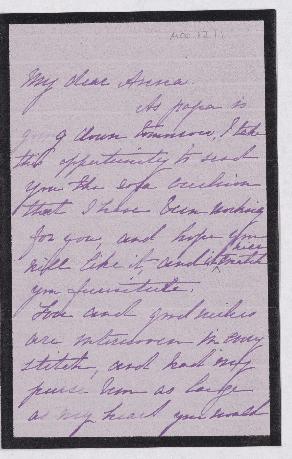 My dear Anna.
As papa is
going down tomorrow, I take
this opportunity to send
you the sofa cushion
that I have been working
for you, and hope you
will like it, and it will match
your furniture.
Love and good wishes
are interwoven in every
stitch, and had my
purse been as large
as my heart you would